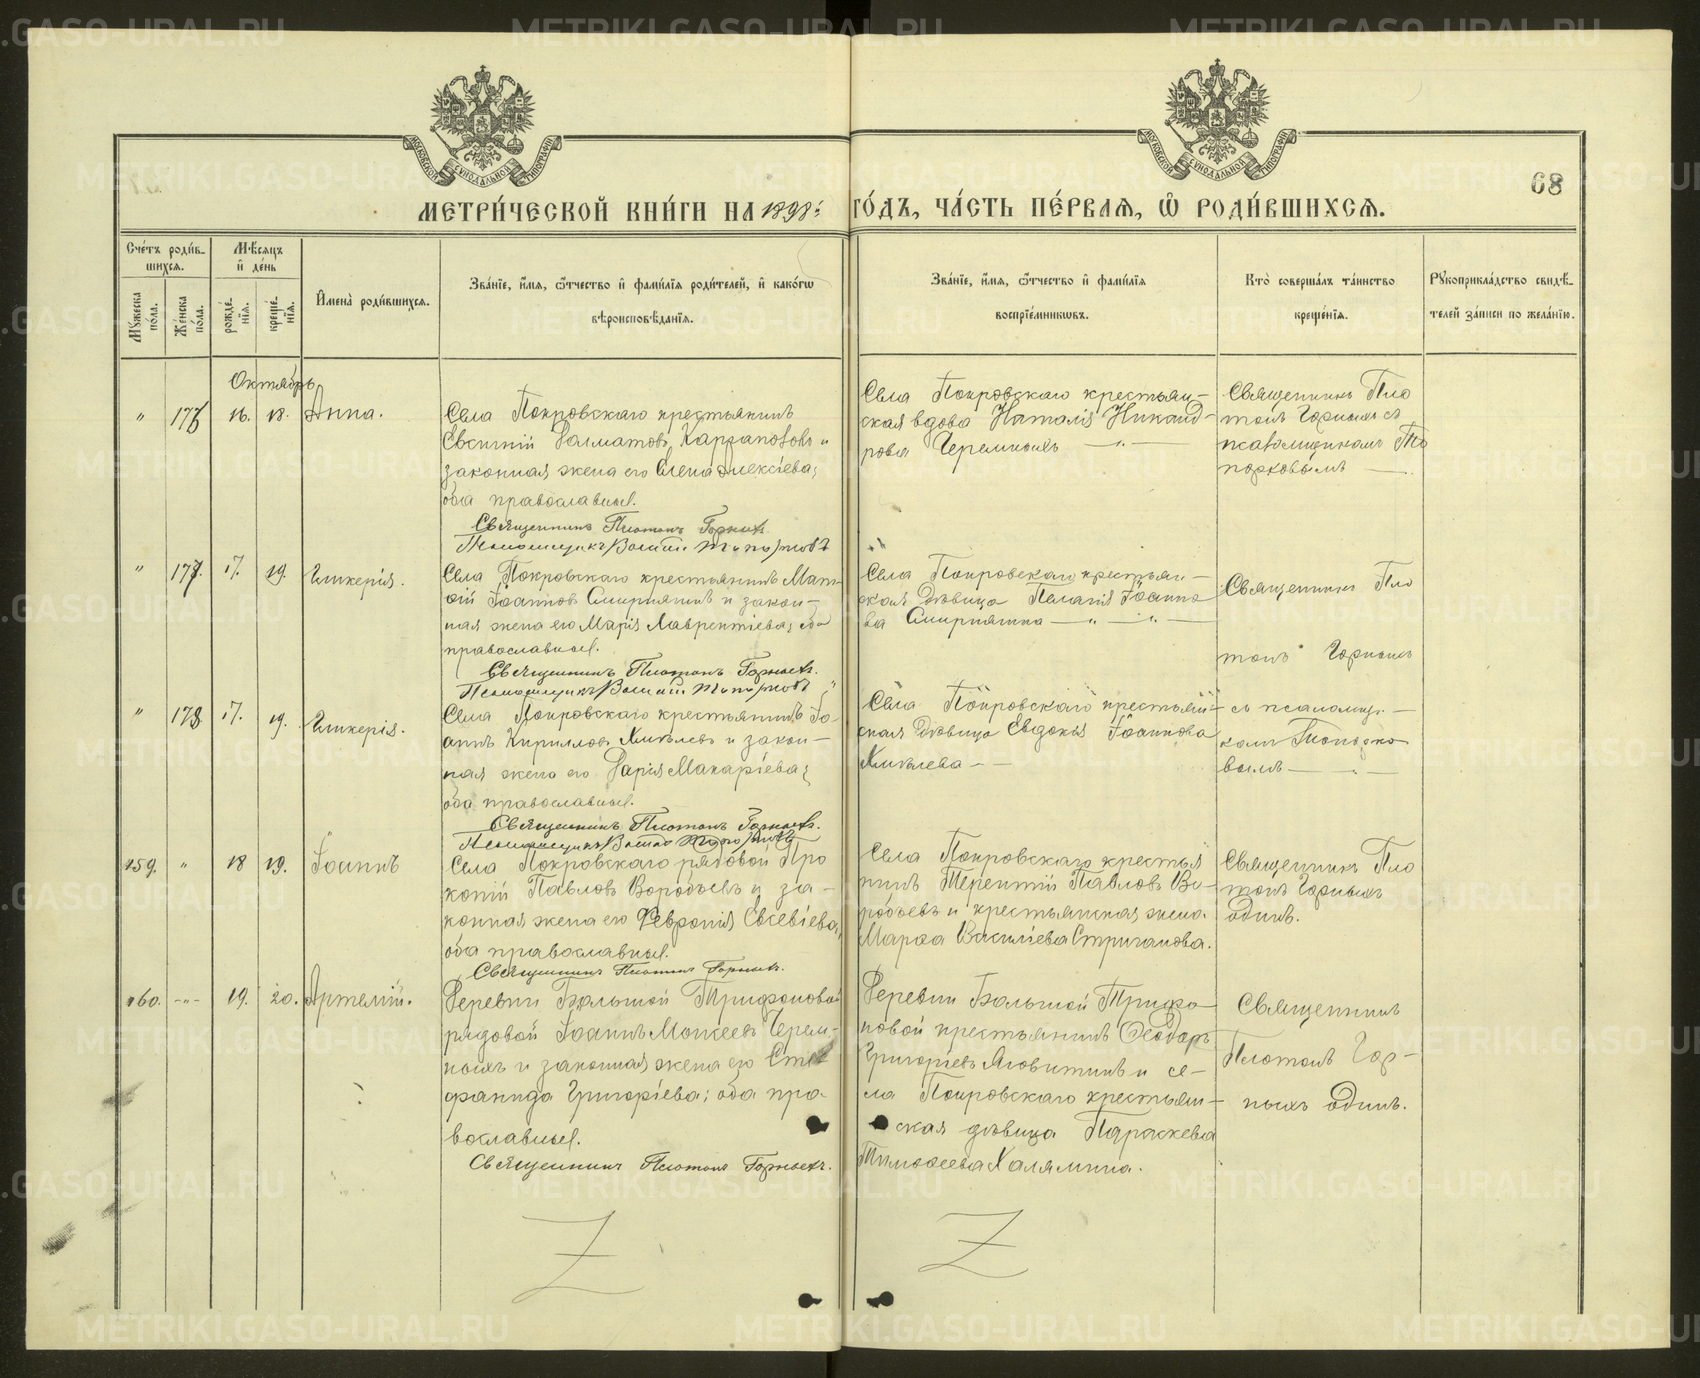 МЕТРИ́ЧЕСКОЙ КНИ́ГИ НА 1898й ГО́ДЪ, ЧА́СТЬ ПЕ́РВАЯ, Ѽ РОДИ́ВШИХСЯ.
68
МОСКОВСКОЙ СУНОДАЛЬНОЙ ТИПОГРАФІИ
МОСКОВСКОЙ СУНОДАЛЬНОЙ ТИПОГРАФІИ
Сче́тъ роди́в-
шихся.
Мѣ́сяцъ
и҆ де́нь
Мꙋжеска
по́ла.
Же́нска
по́ла.
рожде́-
нїя.
креще́-
нїя.
И҆мена̀ роди́вшихся.
Зва́нїе, и҆́мя, ѻ҆́тчество и҆ фами́лїя роди́телей, и҆ како́гѡ
вѣроисповѣ́данїя.
Зва́нїе, и҆́мя, ѻ҆́тчество и҆ фами́лїя
воспрїе́мникѡвъ.
Кто̀ соверша́лъ та́инство
креще́нїя.
Рꙋкоприкла́дство свидѣ́-
телей за́писи по жела́нїю.
Октябрь
" 176 16. 18. Анна.
Села Покровскаго крестьянинъ
Евгеній Карзаповъ и
законная жена его Елена Алексіева;
оба православные.
Священникъ Платонъ Горныхъ
Псаломщикъ Топорковъ
Села Покровскаго крестьян-
ская вдова Наталія Никанд-
рова Черемныхъ — " —
Священникъ Пла
тонъ Горныхъ съ
псаломщикомъ То
порковымъ —
" 177. 17. 19. Гликерія.
Села Покровскаго крестьянинъ Мат-
ѳій Іоанновъ Смирнягинъ и закон-
ная жена его Марія Лаврентіева; оба
православные.
Священникъ Платонъ Горныхъ.
Псаломщикъ Топорковъ
Села Покровскаго крестьян-
ская дѣвица Пелагія Іоанно
ва Смирнягина — " — " —
Священникъ Пла
тонъ Горныхъ
" 178 17. 19. Гликерія.
Села Покровскаго крестьянинъ Іо-
аннъ Кирилловъ Хмѣлевъ и закон-
ная жена его Дарія Макаріева;
оба православные.
Священникъ Платонъ Горныхъ.
Псаломщикъ Топорковъ
Села Покровскаго крестьян-
ская дѣвица Евдокія Іоаннова
Хмѣлева — —
съ псаломщи-
комъ Топорко
вымъ — " —
159. " 18 19. Іоаннъ
Села Покровскаго рядовой Про
копій Павловъ Воробьевъ и за-
конная жена его Февронія Евсевіева;
оба православные.
Священникъ Платонъ Горныхъ.
Села Покровскаго крестья
нинъ Терентій Павловъ Во-
робьевъ и крестьянская жена
Марѳа Василіева Стриганова.
Священникъ Пла
тонъ Горныхъ
одинъ.
160. -"- 19. 20. Артемій.
Деревни Большой Трифоновой
рядовой Іоаннъ Моисеевъ Черем-
ныхъ и законная жена его Сте-
фанида Григоріева; оба пра-
вославные.
Священникъ Платонъ Горныхъ.
Деревни Большой Трифо-
новой крестьянинъ Ѳеодоръ
Григоріевъ Яговитинъ и се-
ла Покровскаго крестьян-
ская дѣвица Параскева
Тимоѳеева Халямина.
Священникъ
Платонъ Гор-
ныхъ одинъ.
METRIKI.GASO-URAL.RU